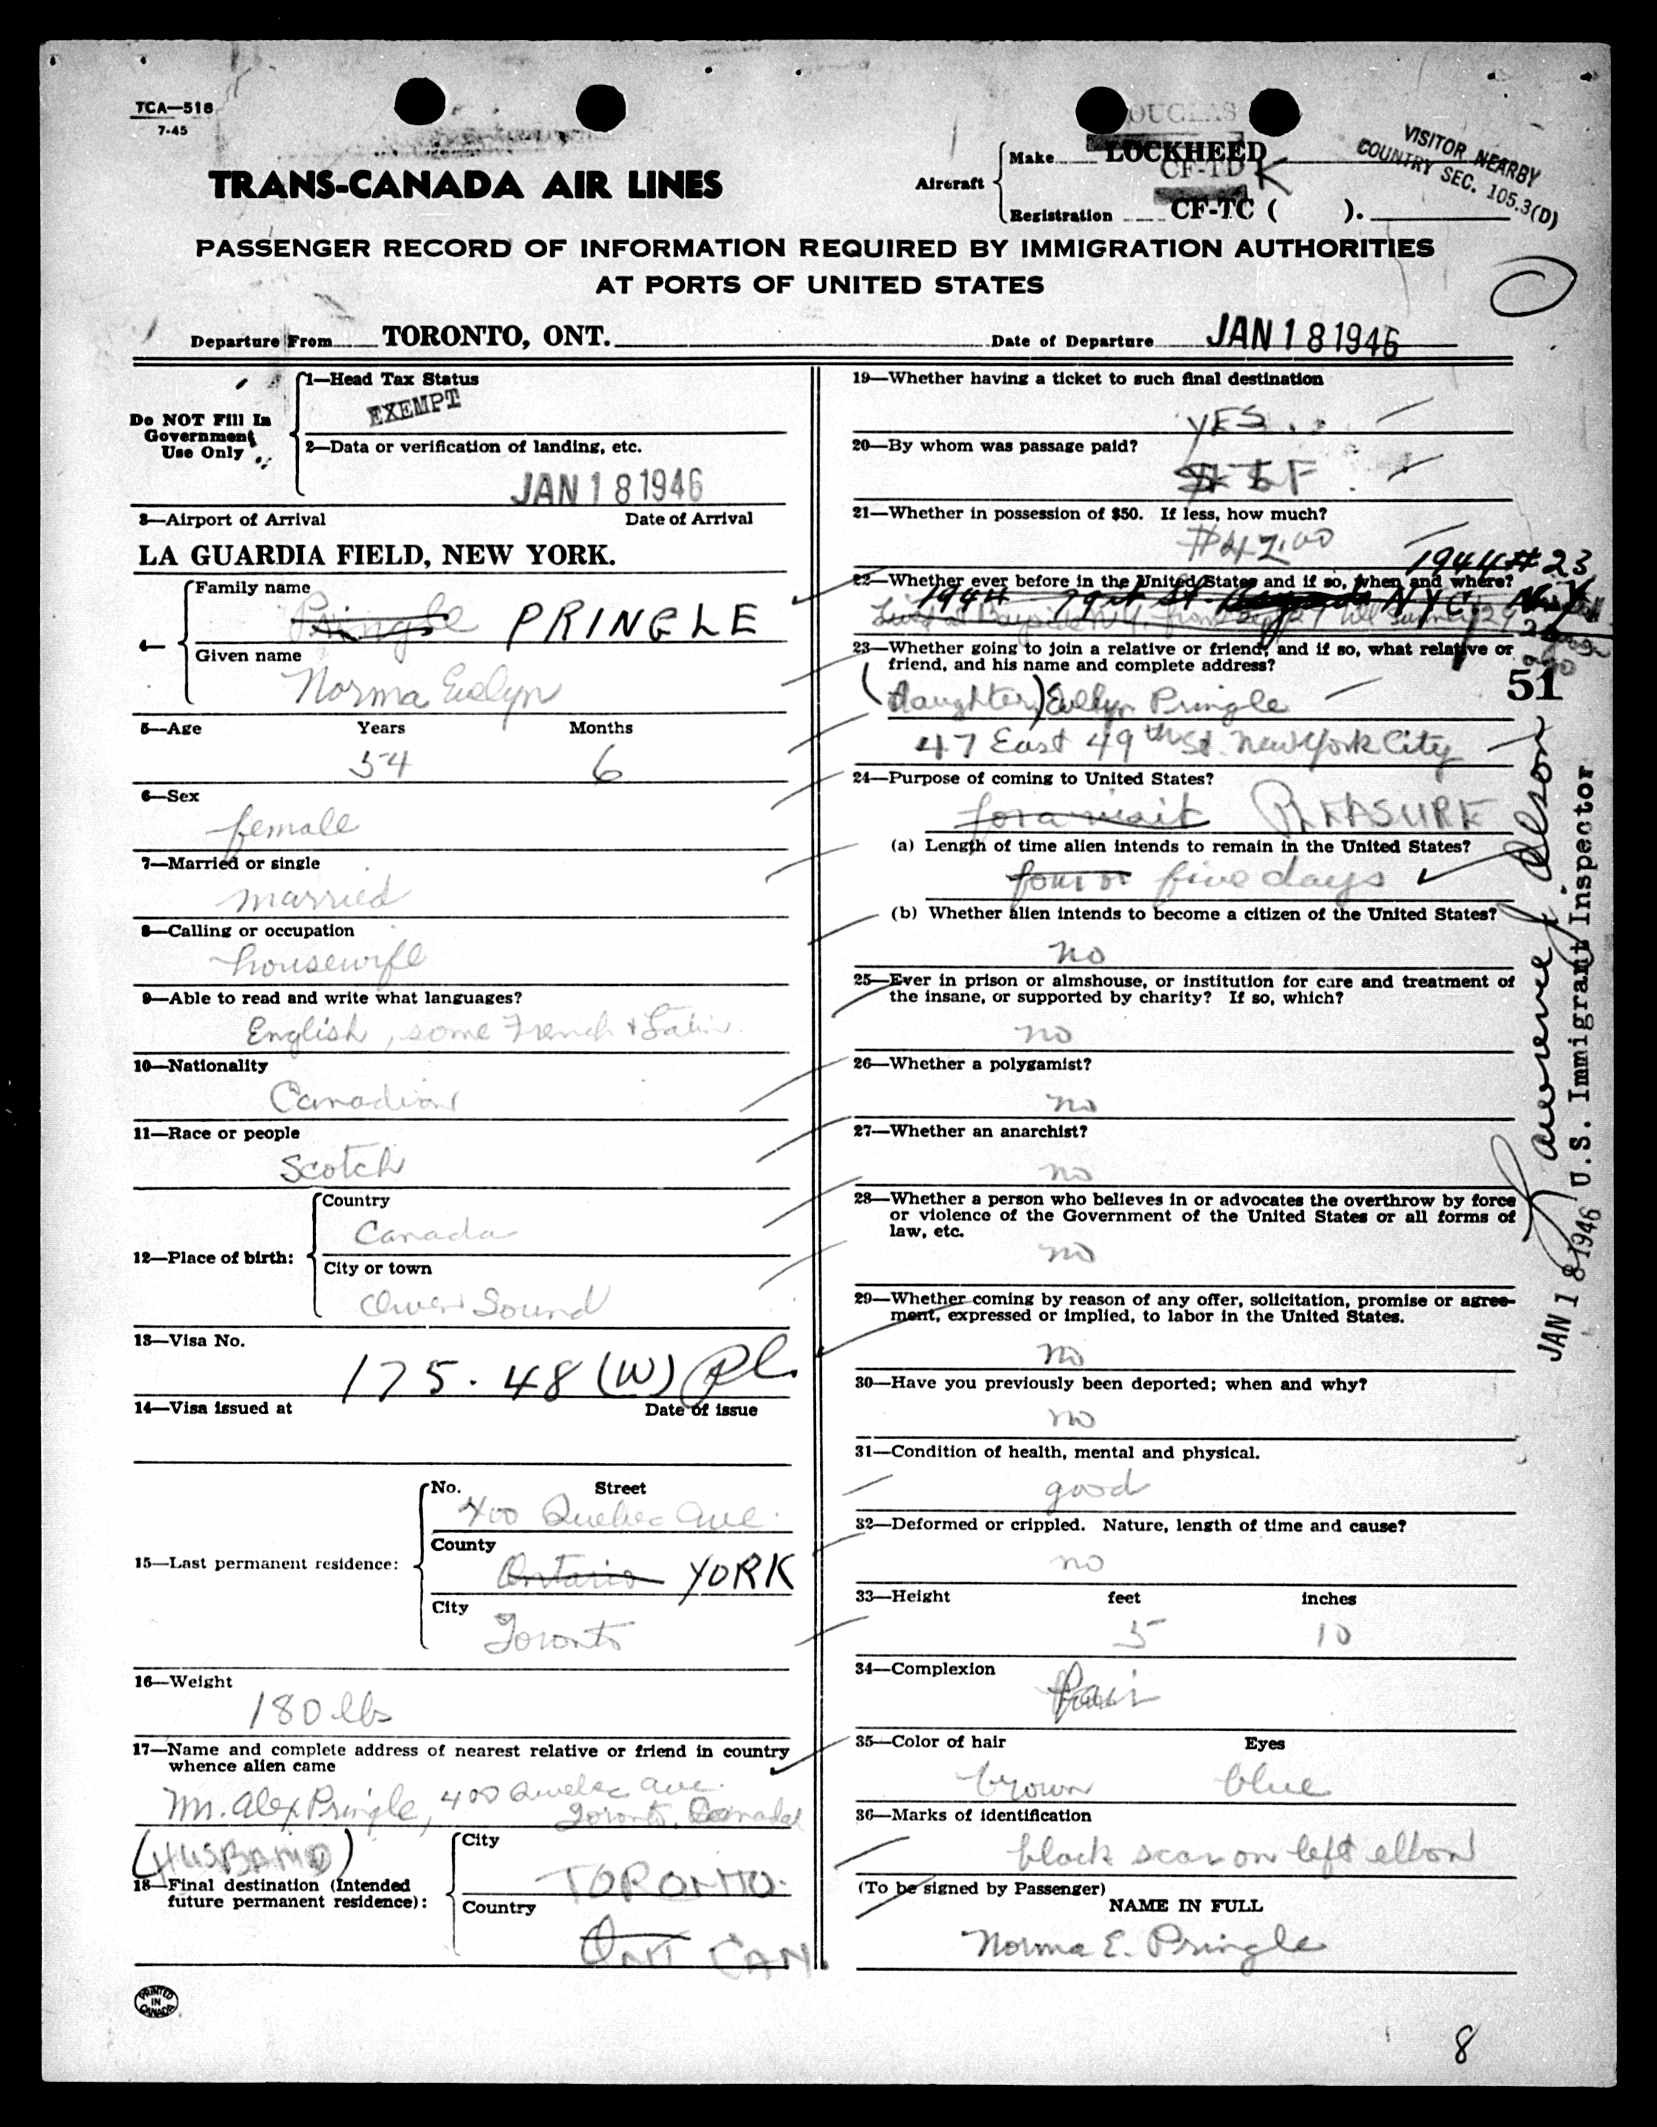 TCA—518
7-45
DOUGLAS
TRANS-CANADA AIR LINES
Aircraft
Make LOCKHEED
CF-TD K
Registration CF-TC ( ).
VISITOR NEARBY
COUNTRY SEC. 105.3(D)
PASSENGER RECORD OF INFORMATION REQUIRED BY IMMIGRATION AUTHORITIES
AT PORTS OF UNITED STATES
Departure From TORONTO, ONT.
Date of Departure JAN 18 1946
Do NOT Fill In
Government
Use Only
1—Head Tax Status
EXEMPT
2—Data or verification of landing, etc.
JAN 18 1946
3—Airport of Arrival Date of Arrival
LA GUARDIA FIELD, NEW YORK.
4—
Family name
Pringle PRINGLE
Given name
Norma Evelyn
5—Age Years Months
54 6
6—Sex
female
7—Married or single
married
8—Calling or occupation
housewife
9—Able to read and write what languages?
English, some French & Latin.
10—Nationality
Canadian
11—Race or people
Scotch
12—Place of birth:
Country
Canada
City or town
Owen Sound
13—Visa No.
175.48 (W)
14—Visa issued at Date of issue
15—Last permanent residence:
No. Street
400 Quebec Ave.
County
Ontario YORK
City
Toronto
16—Weight
180 lbs
17—Name and complete address of nearest relative or friend in country
whence alien came
Mr. Alex Pringle, 400 Quebec Ave.
Toronto, Canada
(HUSBAND)
18—Final destination (Intended
future permanent residence):
City
TORONTO.
Country
ONT CAN.
PRINTED
IN
CANADA
19—Whether having a ticket to such final destination
YES.
20—By whom was passage paid?
21—Whether in possession of $50. If less, how much?
$42.00
1944 # 23
22—Whether ever before in the United States and if so, when and where?
1944 79 St. N Y C.
23—Whether going to join a relative or friend, and if so, what relative or
friend, and his name and complete address?
51
(daughter) Evelyn Pringle
47 East 49th St. New York City
24—Purpose of coming to United States?
for a visit PLEASURE
(a) Length of time alien intends to remain in the United States?
four or five days
(b) Whether alien intends to become a citizen of the United States?
no
25—Ever in prison or almshouse, or institution for care and treatment of
the insane, or supported by charity? If so, which?
no
26—Whether a polygamist?
no
27—Whether an anarchist?
no
28—Whether a person who believes in or advocates the overthrow by force
or violence of the Government of the United States or all forms of
law, etc.
no
29—Whether coming by reason of any offer, solicitation, promise or agree-
ment, expressed or implied, to labor in the United States.
no
30—Have you previously been deported; when and why?
no
31—Condition of health, mental and physical.
good
32—Deformed or crippled. Nature, length of time and cause?
no
33—Height feet inches
5 10
34—Complexion
fair
35—Color of hair Eyes
brown blue
36—Marks of identification
black scar on left elbow
(To be signed by Passenger)
NAME IN FULL
Norma E. Pringle
JAN 18 1946 U.S. Immigrant Inspector
8